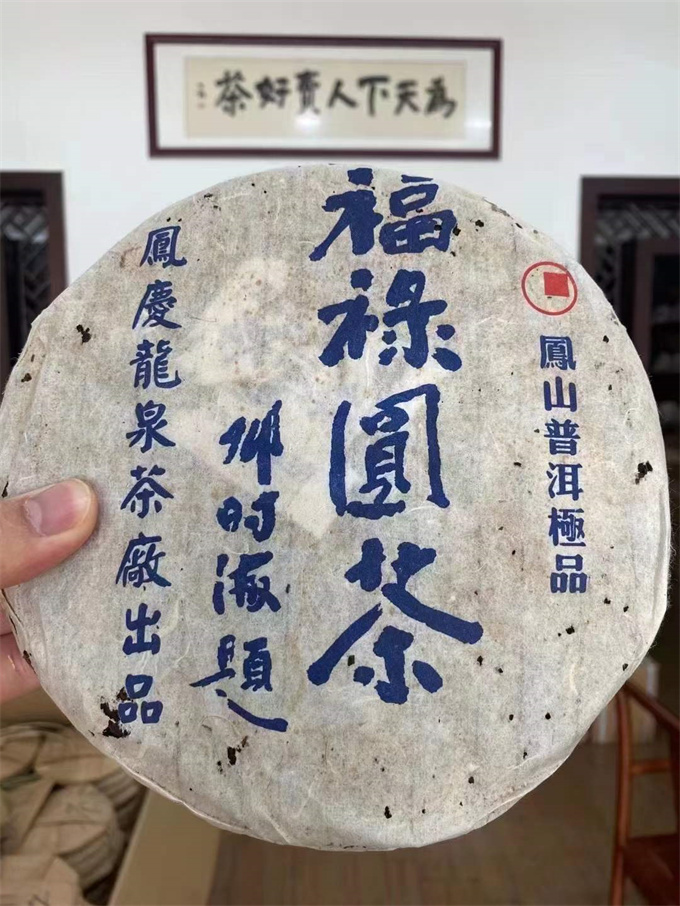 為天下人賣好茶
鳳山普洱極品
福祿圓茶
时海題
鳳慶龍泉茶廠出品